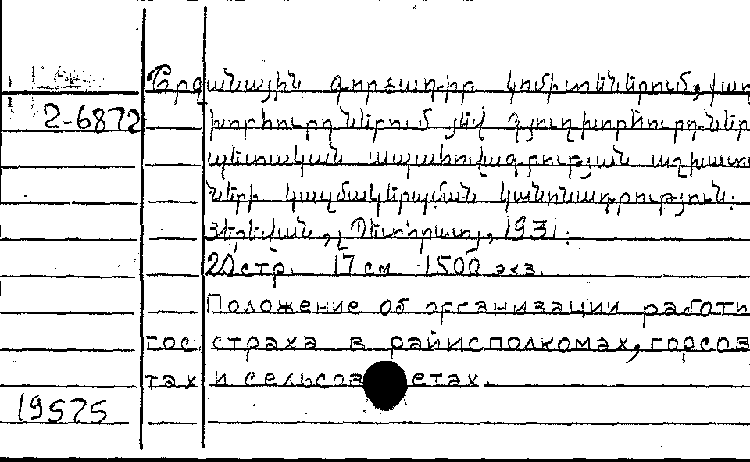 Շրջանային գործադիր կոմիտեներում, քաղ
2-6872
խորհուրդներում յեվ գյուղխորհուրդներ
պետական ապահովագրության աշխատ
ների կազմակերպման կանոնադրություն:
Յերեվան, Պետհրատ, 1931:
20 стр. 17 см 1500 экз.
Положение об организации работы
гос страха в райисполкомах, горсов
тах и сельсоветах.
19575